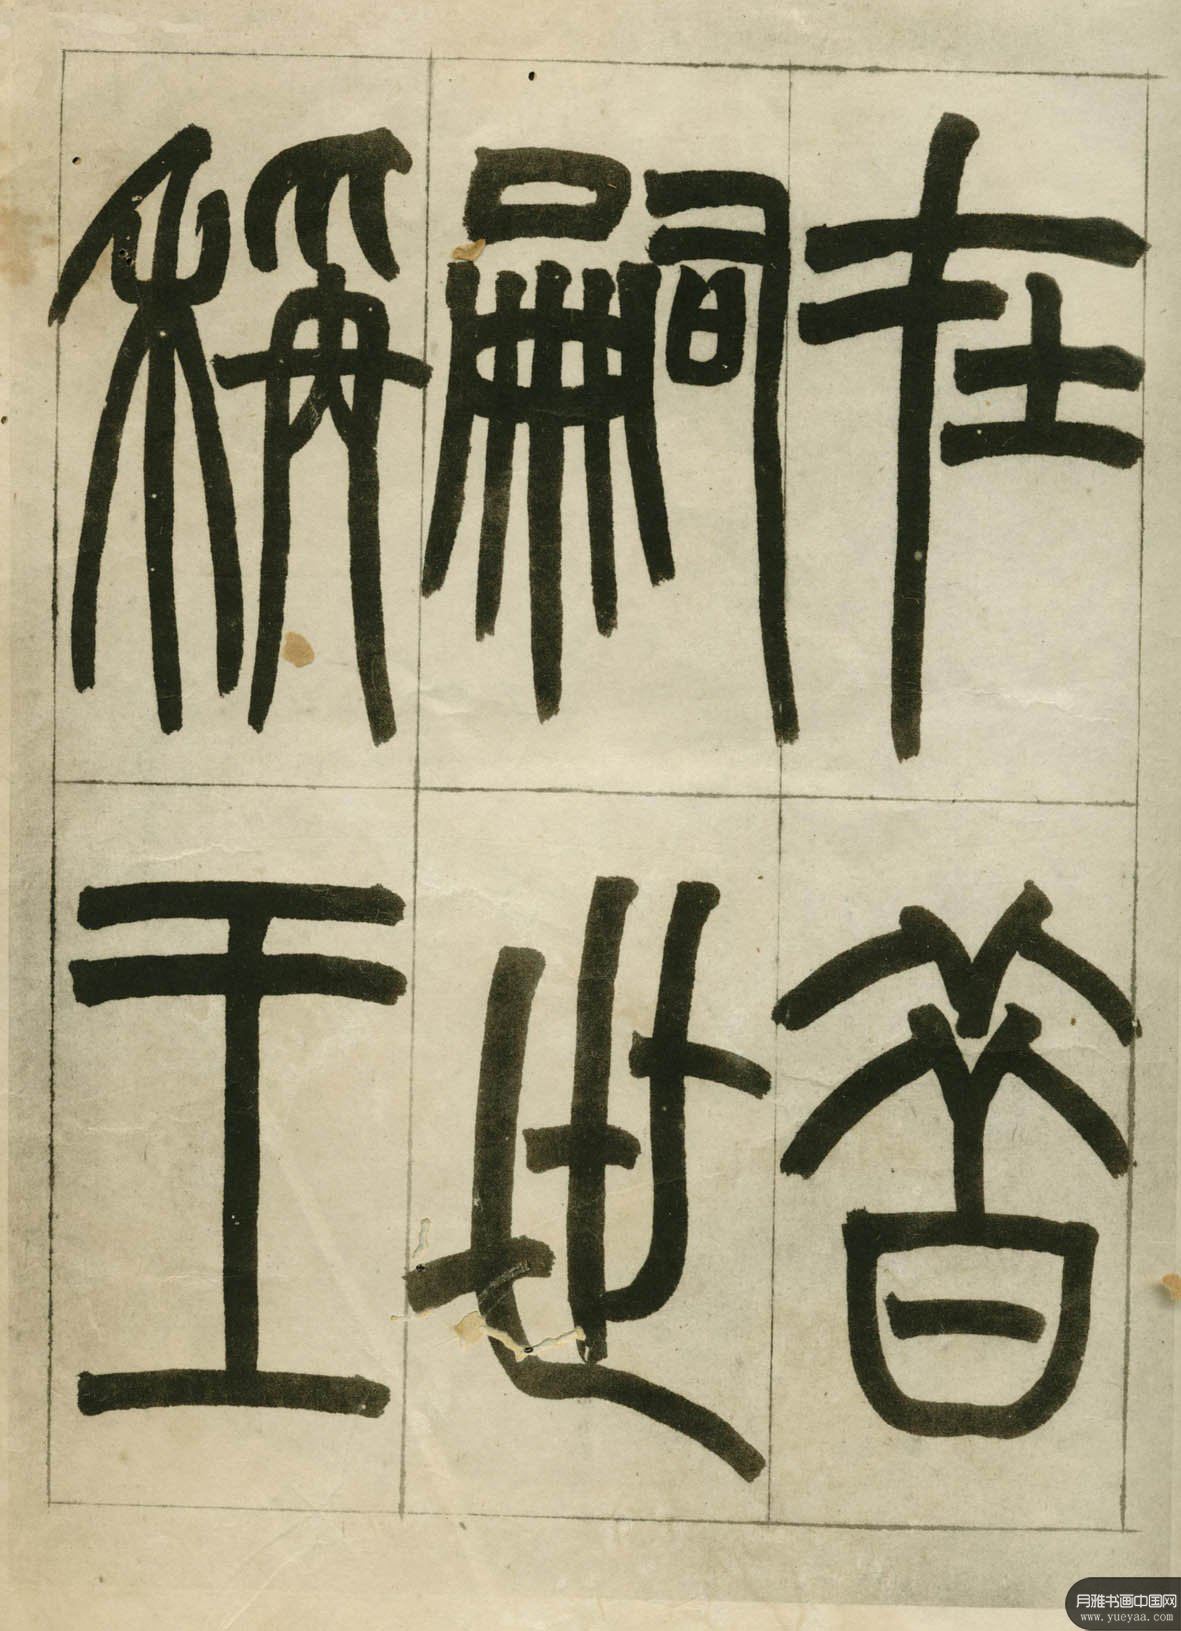 在昔
嗣世
稱王
月雅书画中国网
www.yueyaa.com